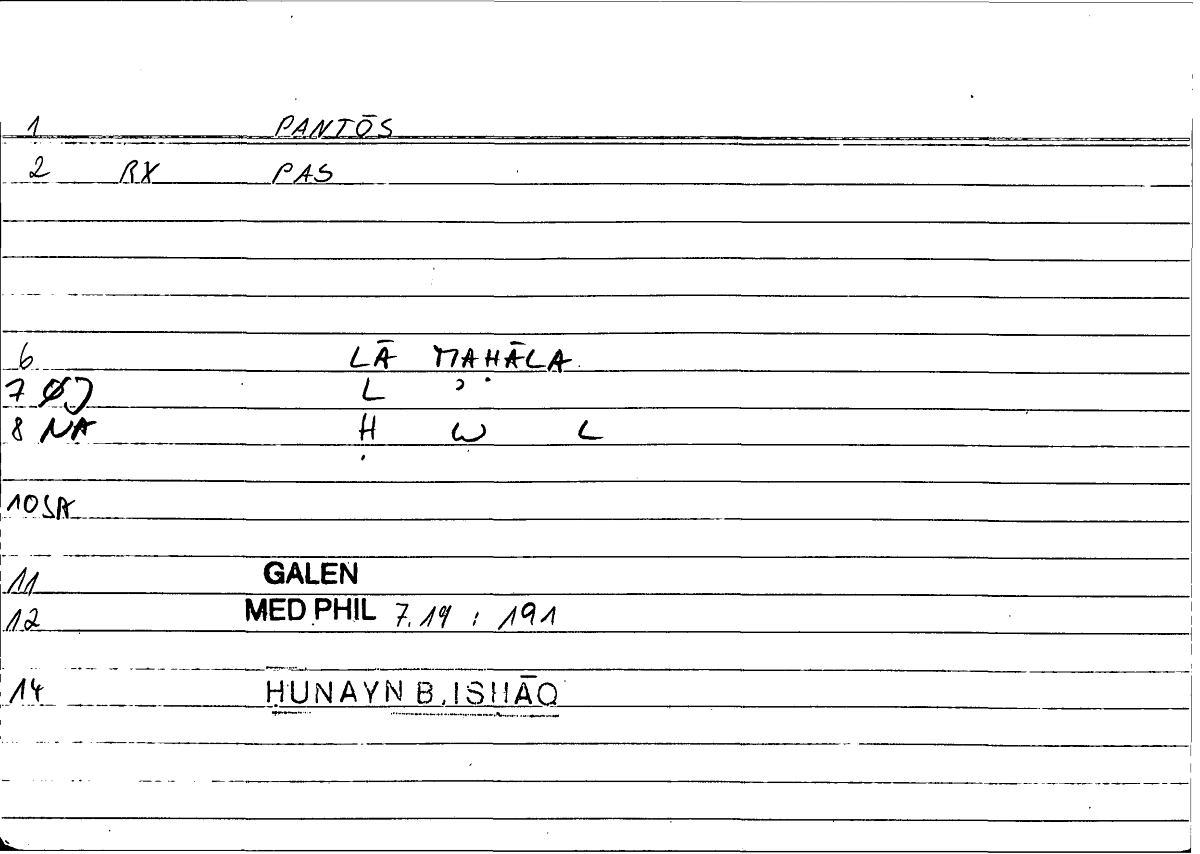 1 PANTŌS
2 RX PAS
6 LĀ MAḤĀLA
7 ØJ L ʾ
8 NA Ḥ W L
10 SA
11 GALEN
12 MED PHIL 7.19 : 191
14 ḤUNAYN B. ISḤĀQ